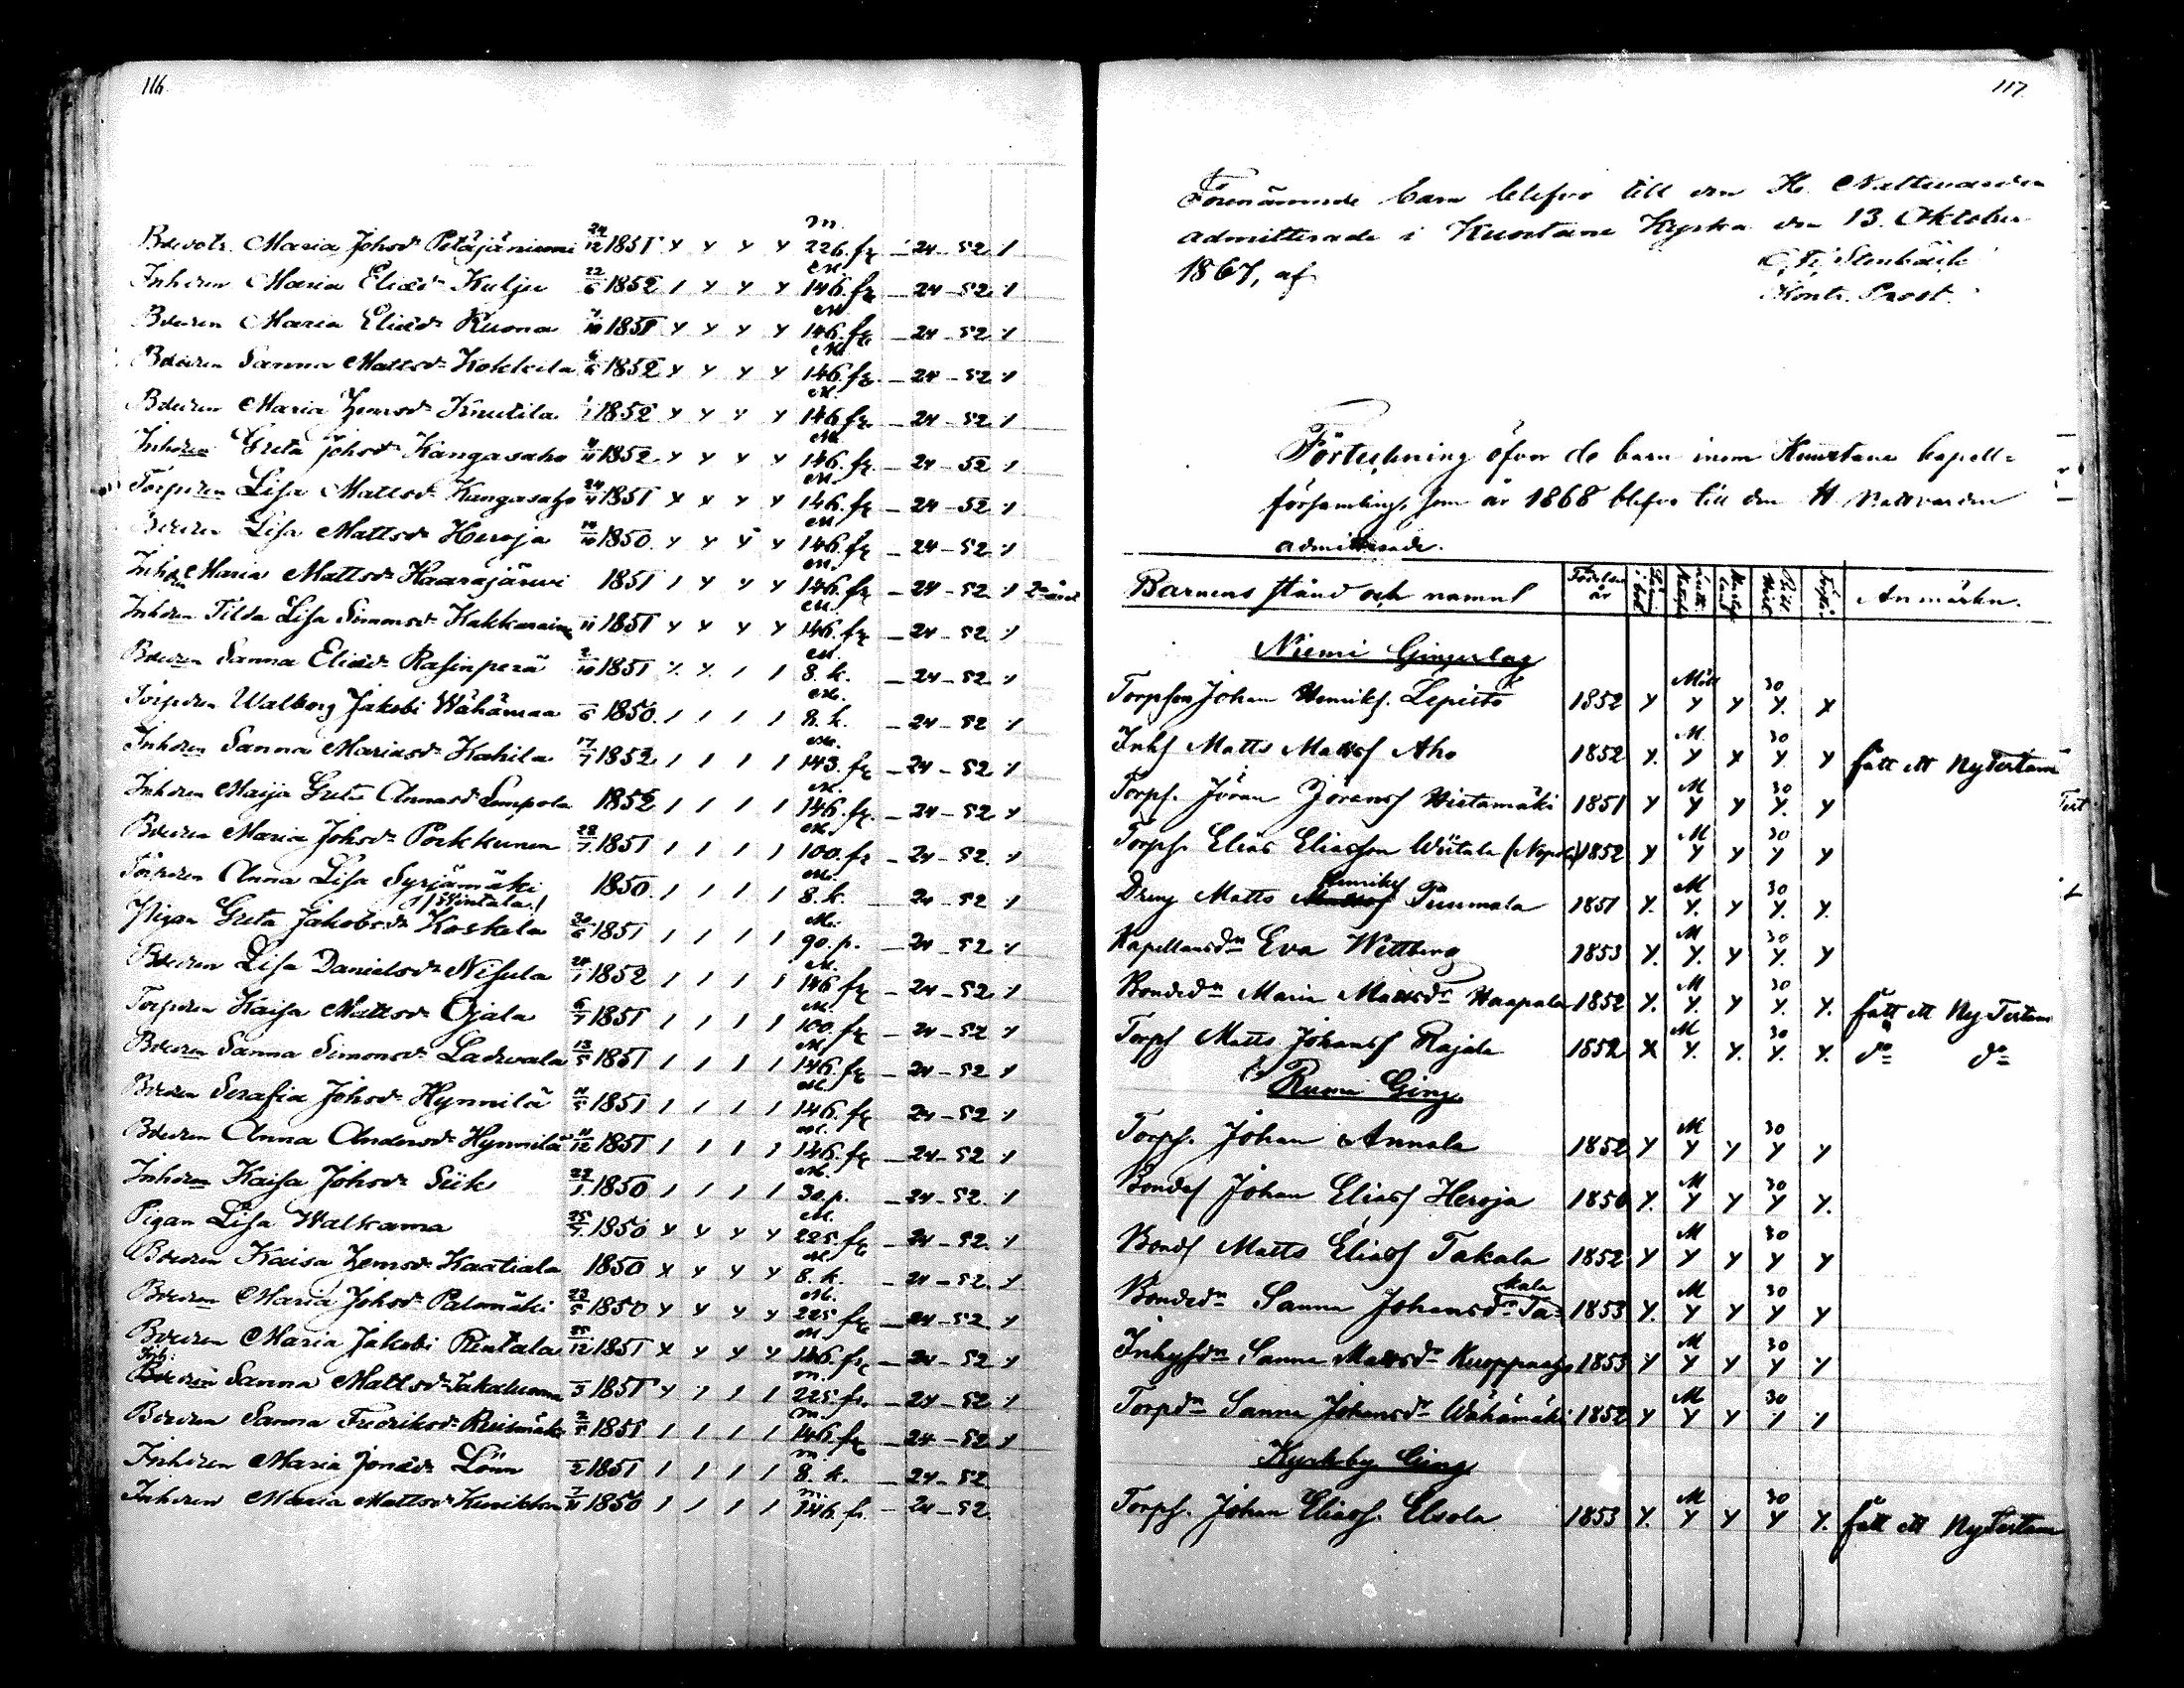 116.
Bdedotr. Maria Johsdr Petäjäniemi 24/12 1851 y y y y m. 226. fr — 24 — 52 y
Inhdren Maria Eliasdr Kulju 22/6 1852 / y y y M. 146. fr — 24 — 52 y
Bdedren Maria Eliasdr Ruona 1851 y y y y M. 146. fr — 24 — 52 y
Bdedren Sanna Mattsdr Kokkila 1852 y y y y M. 146. fr — 24 — 52 y
Bdedren Maria Zemsdr Knutila 1852 y y y y M. 146. fr — 24 — 52 y
Inhdren Greta Johsdr Kangasaho 1852 y y y y M. 146. fr — 24 — 52 y
Torpdren Lisa Mattsdr Kangasaho 1851 y y y y M. 146. fr — 24 — 52 y
Bdedren Lisa Mattsdr Heroja 1850 y y y y M. 146. fr — 24 — 52 y
Inhdren Maria Mattsdr Haarajärwi 1851 / y y y M. 146. fr — 24 — 52 y
Inhdren Tilda Lisa Simonsdr 1851 y y y y M. 146. fr — 24 — 52 y
Bdedren Sanna Eliasdr Rasinperä 2/10 1851 y y / / M. 8. k. — 24 — 52 y
Torpdren Walborg Jakobi Wähämaa 1850 / / / / M. 8. k. — 24 — 52 y
Inhdren Sanna Mariasdr Kahila 17/7 1852 / / / / M. 143. fr — 24 — 52 y
Inhdren Maija Greta Annasdr Lempola 1852 / / / / M. 146. fr — 24 — 52 y
Bdedren Maria Johsdr Porkkunen 1851 / / / / M. 100. fr — 24 — 52 y
Torpdren Anna Lisa Syrjämäki 1850 / / / / M. 8. k. — 24 — 52 y
Pigan Greta Jakobsdr Koskela 30/6 1851 / / / / M. 90. p. — 24 — 52 y
Bdedren Lisa Danielsdr Nisula 24/1 1852 / / / / M. 146 fr — 24 — 52 y
Torpdren Kaisa Mattsdr Ojala 6/7 1851 / / / / M. 100. fr — 24 — 52 y
Bdedren Sanna Simonsdr Ladwala 13/5 1851 / / / / M. 146. fr — 24 — 52 y
Bdedren Serafia Johsdr Hynnilä 1851 / / / / M. 146. fr — 24 — 52 y
Bdedren Anna Andersdr Hynnilä 11/12 1851 / / / / M. 146. fr — 24 — 52 y
Inhdren Kaisa Johsdr Siik 1850 / / / / M. 30. p. — 24 — 52 y
Pigan Lisa Walkama 25/7 1850 y y y y M. 225. fr — 24 — 52 y
Bdedren Kaisa Zemsdr Kaatiala 1850 y y y y M. 8. k. — 24 — 52 y
Bdedren Maria Johsdr Palomäki 23/5 1850 y y y y M. 225. fr — 24 — 52 y
Bdedren Maria Jakobi Rintala 25/12 1851 y y y y M. 146. fr — 24 — 52 y
Inh. Sanna Mattsdr 1851 y / / / m. 225. fr — 24 — 52 y
Bdedren Sanna Fredriksdr Reismäki 1851 / / / / m. 146. fr — 24 — 52 y
Inhdren Maria Jonasdr Lönn 1851 / / / / m. 8. k. — 24 — 52
Inhdren Maria Mattsdr Kurikka 1850 / / / / m. 146. fr. — 24 — 52
117.
Förenämnde barn blefvo till den H. Nattvarden
admitterade i Kuortane Kyrka den 13. Oktober
1867, af
C. Fr. Stenbäck
Kontr. Prost.
Förteckning öfver de barn inom Kuortane kapell=
församling, som år 1868 blefvo till den H. Nattvarden
admitterade.
Barnens stånd och namn Födelse år Anmärkn.
Niemi Gingerlag
Torpson Johan Henrikss. Lepistö 1852 y Mått y y 30 y. y
Inhs Matts Mattss Aho 1852 y. M. y y 30 y y fått ett Ny Testam
Torps. Jöran Jöranss Wirtamäki 1851 y M y y 30 y. y
Torps. Elias Eliasson Wiitala (Nopola) 1852 y M y y 30 y y
Dreng Matts Henrikss Tuumala 1851 y. M y. y 30 y. y.
Kapellansdn Eva Wettberg 1853 y. M y. y 30 y. y
Bondedn Maria Mattsdr Haapala 1852 y. M y. y 30 y. y. fått ett Ny Testam
Torps Matts Johanss Rajala 1852 y M y. y. 30 y. y. do do
Ruona Ging.
Torps. Johan Annala 1852 y M y y 30 y y
Bondes Johan Eliass Heroja 1850 y. M y y 30 y y.
Bonds Matts Eliass Takala 1852 y M y y 30 y y
Bondedn Sanna Johansdr Takala 1853 y. M y y 30 y y
Inhysdn Sanna Mattsdr Kuoppaaho 1853 y M y y 30 y y
Torpdn Sanna Johansdr Wähämäki 1852 y M y y 30 y y
Kyrkby Ging
Torps. Johan Eliass. Elsola 1853 y. M y y 30 y y. fått ett Ny Testam